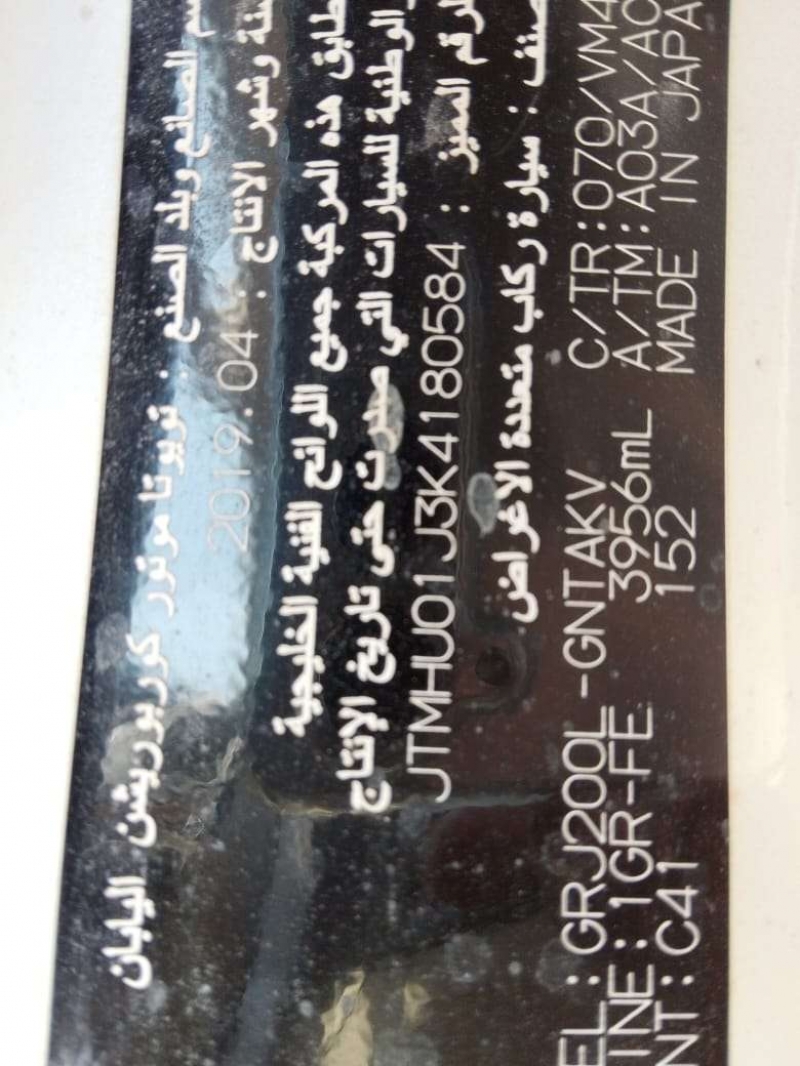 سم الصانع وبلد الصنع : تويوتا موتور كوربوريشن اليابان
نة وشهر الانتاج : 2019.04
طابق هذه المركبة جميع اللوائح الفنية الخليجية
الوطنية للسيارات التي صدرت حتى تاريخ الإنتاج
لرقم المميز : JTMHU01J3K4180584
صنف : سيارة ركاب متعددة الاغراض
EL : GRJ200L-GNTAKV C/TR : 070/VM4
INE : 1GR-FE 3956mL A/TM : A03A/A0
NT : C41 152 MADE IN JAPA